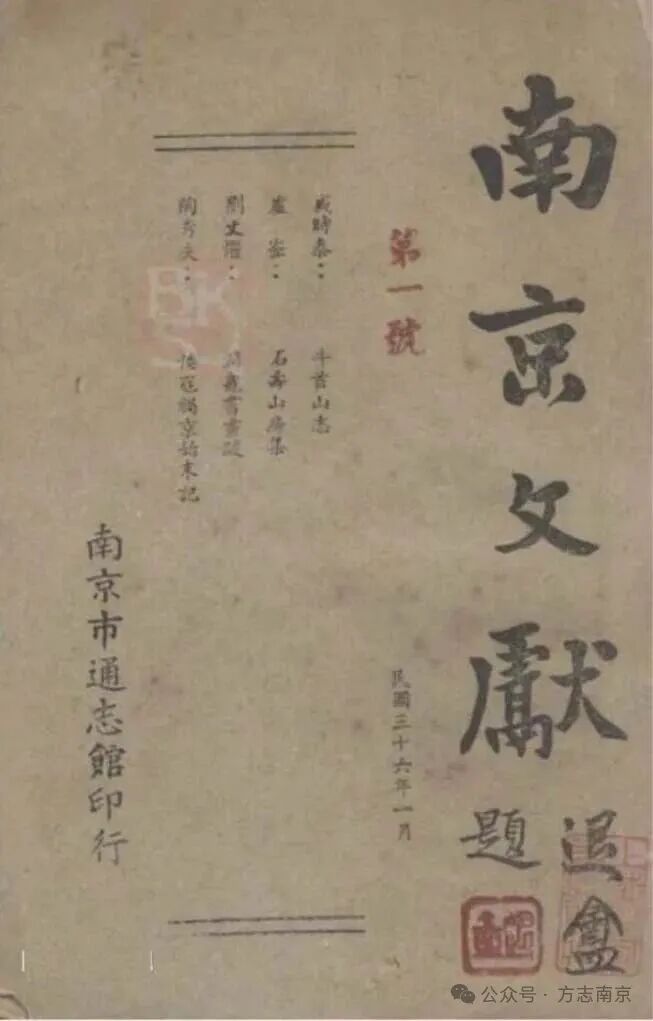 南京文獻
退盦題
第一號
民國三十六年一月
盛時泰：牛首山志
盧崟：石壽山房集
陶秀夫：倭寇禍京始末記
南京市通志館印行
公众号·方志南京